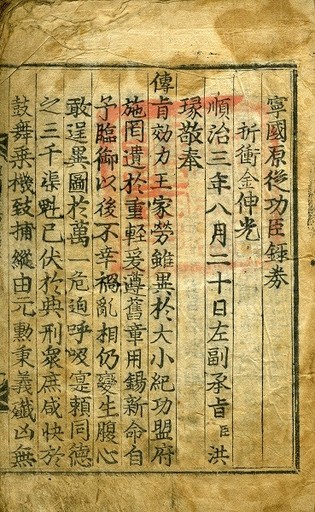 寧國原從功臣錄券
折衝金伸光
順治三年八月二十日左副承旨臣洪
瑑敬奉
傳旨効力王家勞雖異於大小紀功盟府
施罔遺於重輕爰遵舊章用錫新命自
予臨御以後不幸禍亂相仍變生腹心
敢逞異圖於萬一危迫呼吸寔賴同德
之三千渠魁已伏於典刑衆庶咸快於
鼓舞乗機致捕縱由元勲秉義殱凶無